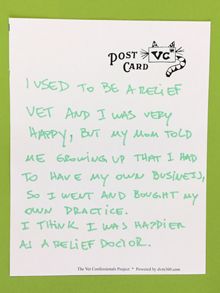 POST CARD
VC
I USED TO BE A RELIEF
VET AND I WAS VERY
HAPPY, BUT MY MOM TOLD
ME GROWING UP THAT I HAD
TO HAVE MY OWN BUSINESS,
SO I WENT AND BOUGHT MY
OWN PRACTICE.
I THINK I WAS HAPPIER
AS A RELIEF DOCTOR.
The Vet Confessionals Project * Powered by dvm360.com